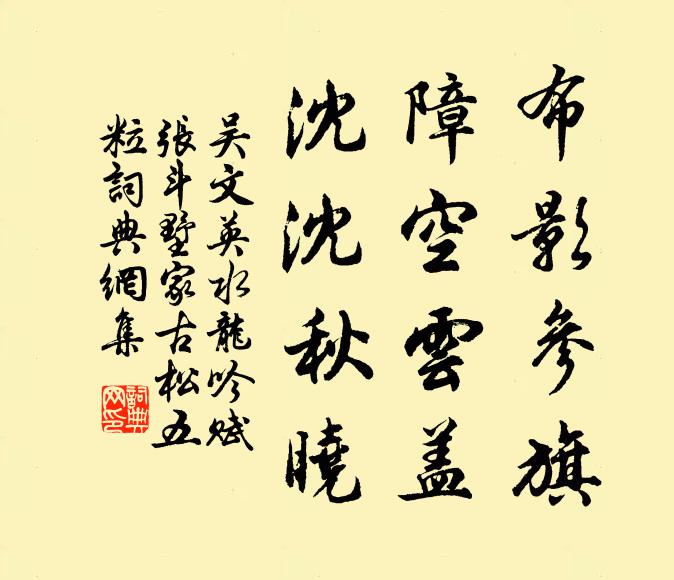 布影參旗
障空雲盖
沈沈秋曉
吴文英水龍吟賦
張斗墅家古松五
粒詞典網集
詞典
网印